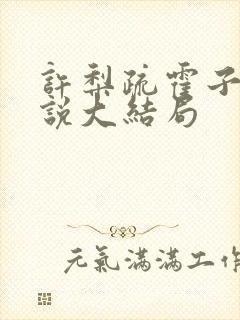 許梨疏霍子
說大結局
元氣滿滿工作